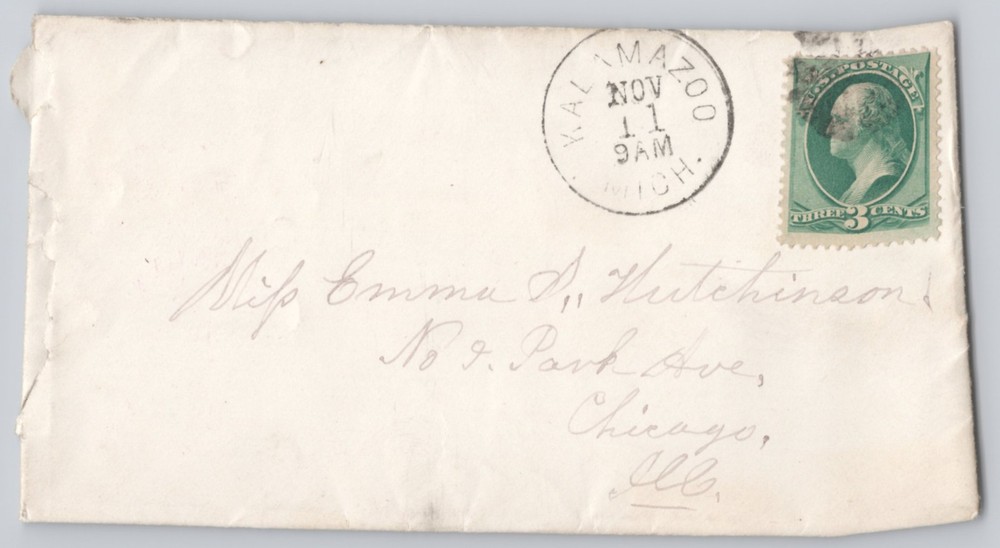 KALAMAZOO
NOV
11
9AM
MICH.
U.S. POSTAGE
THREE 3 CENTS
Miss Emma D,, Hutchinson.
No 9. Park Ave,
Chicago,
Ill.